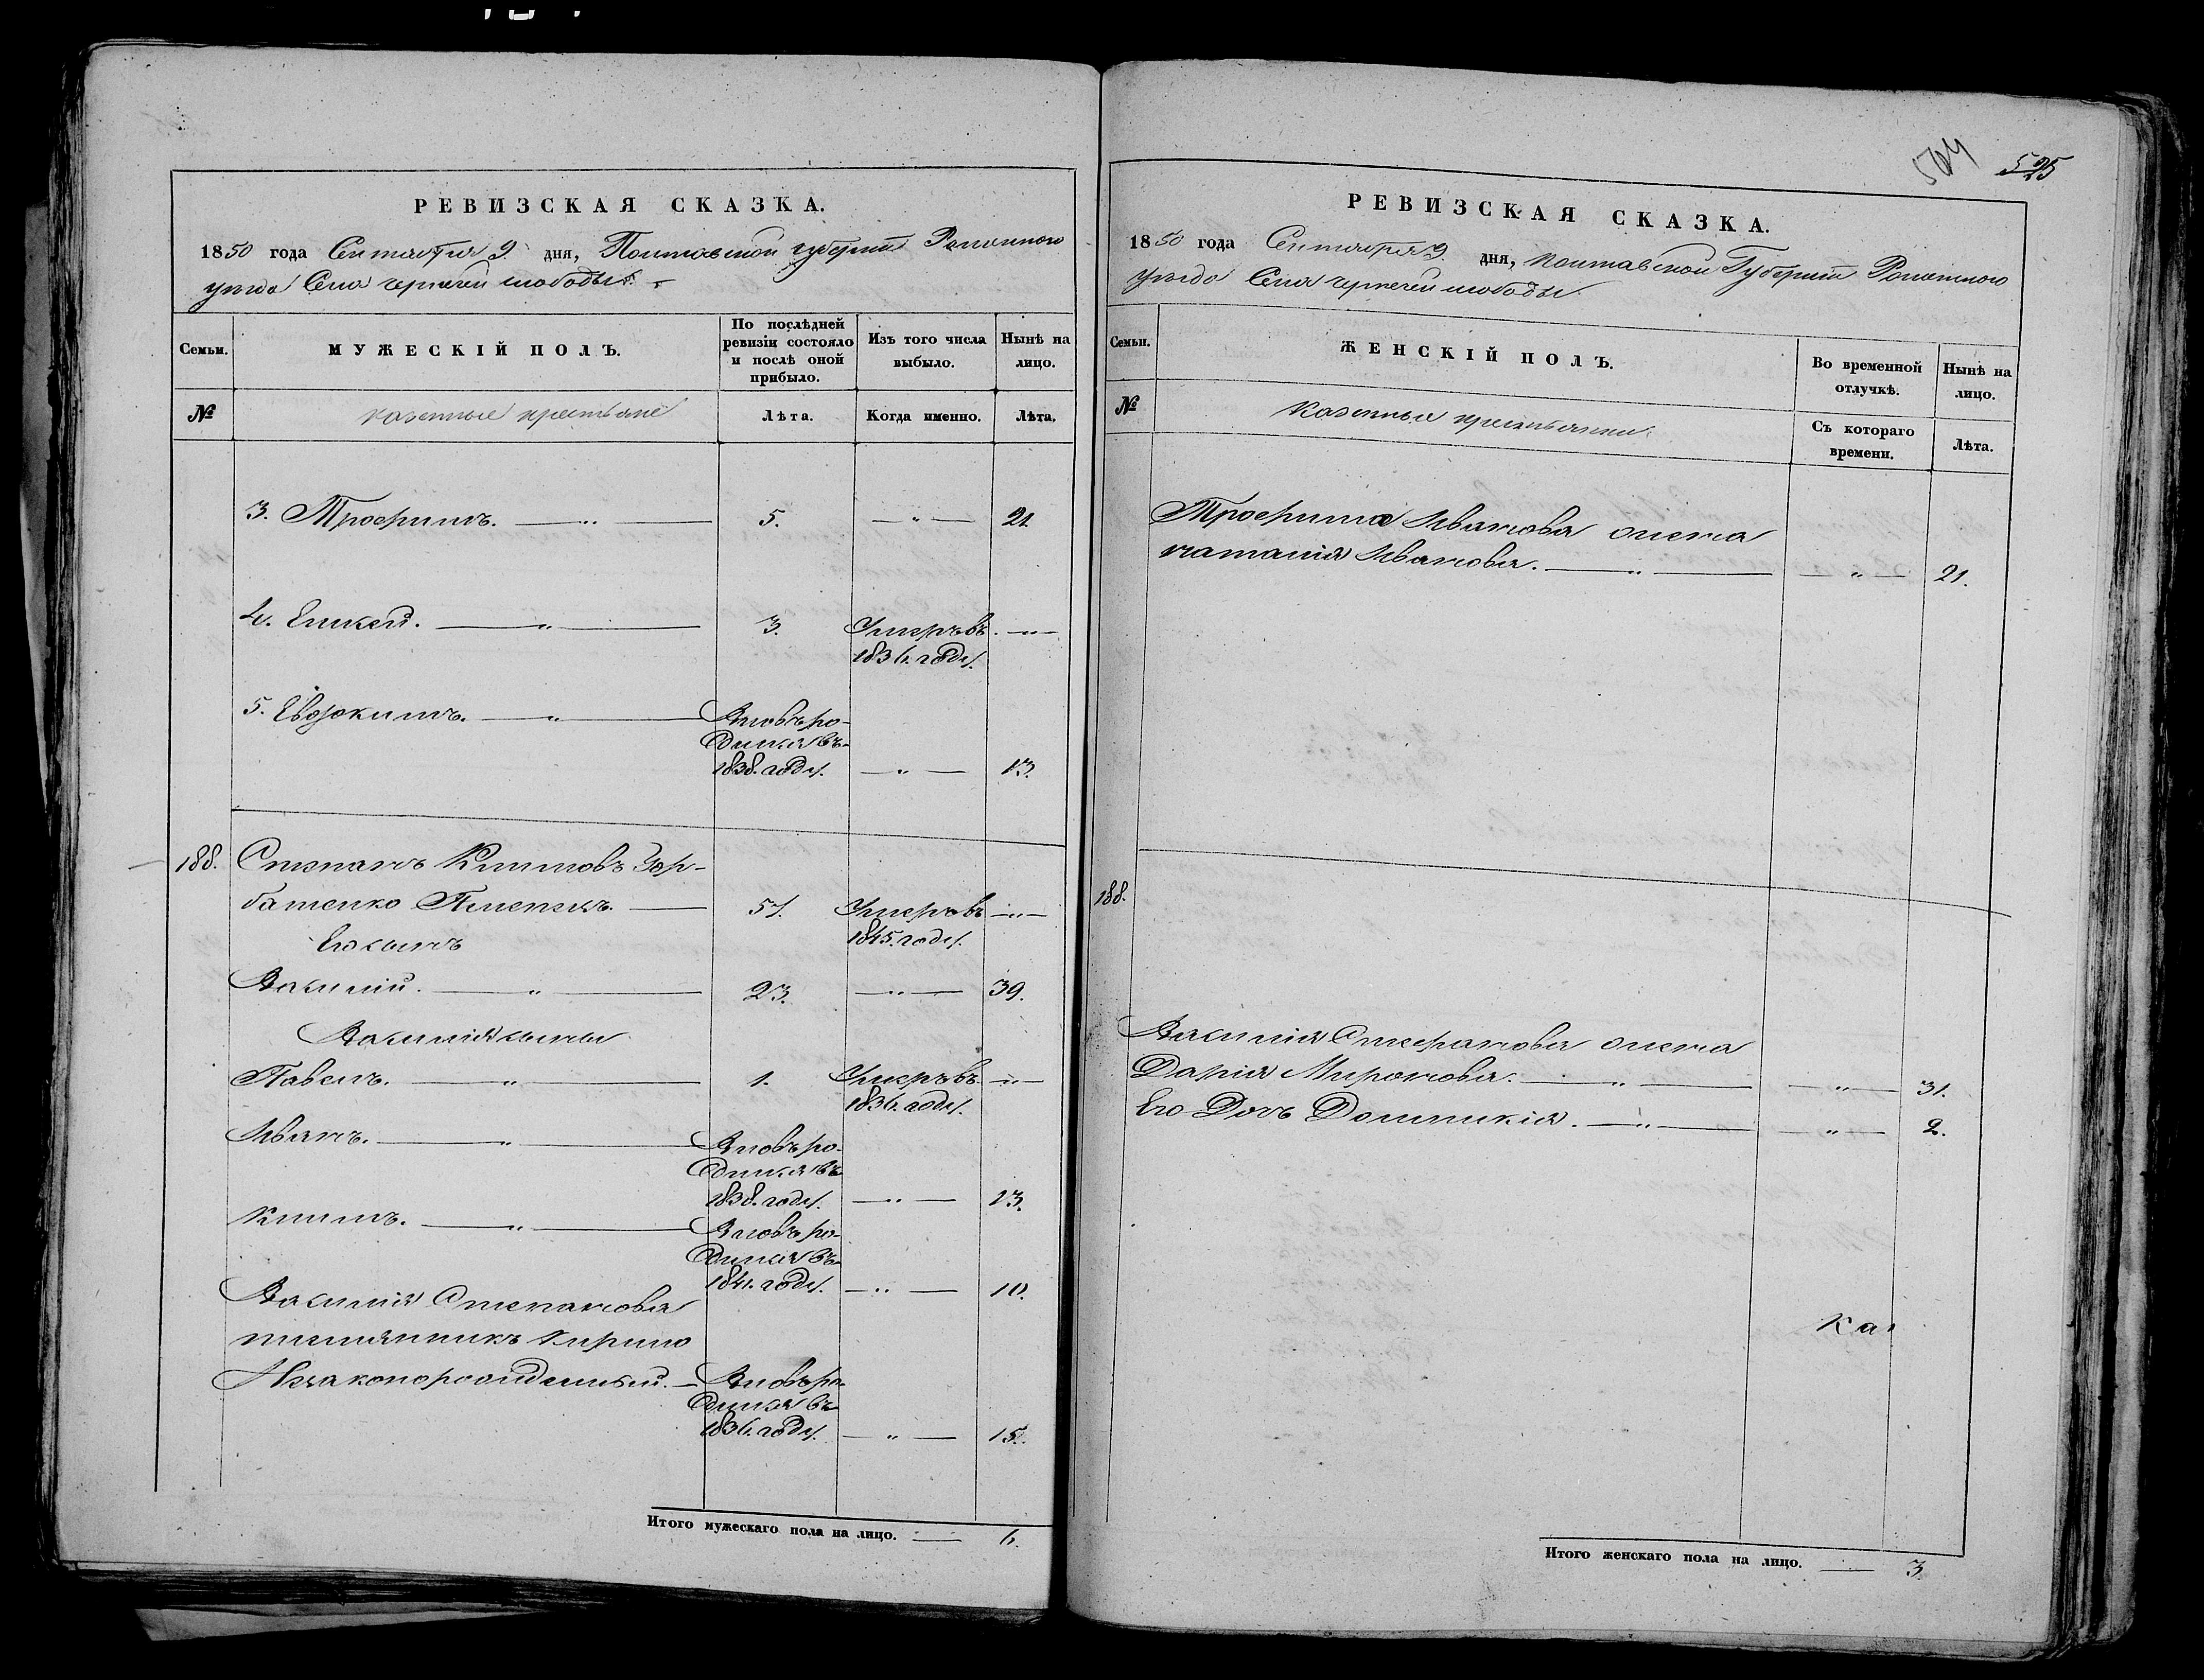 РЕВИЗСКАЯ СКАЗКА.
1850 года Сентября 9. дня, Полтавской губерніи Роменского
уезда Села чернечей слободы.
Семьи. МУЖЕСКІЙ ПОЛЪ. По послѣдней ревизіи состояло и послѣ оной прибыло. Изъ того числа выбыло. Нынѣ на лицо.
№ казенные крестьяне Лѣта. Когда именно. Лѣта.
3. Трофимъ. — " — 5. — " — 21.
4. Еликей. — " — 3. Умеръ въ — " —
1836. годѣ.
5. Евдокимъ. — " — Вновь ро-
дился въ
1838. годѣ. — " — 13.
188. Степанъ Климовъ Гор-
батенко Пшенецъ. — 51. Умеръ въ — " —
Его сынъ 1845. годѣ.
Василий. — " — 23. — " — 39.
Василія сыны
Павелъ. — " — 1. Умеръ въ — " —
1836. годѣ.
Иванъ. — " — Вновь ро-
дился въ
1838. годѣ. — " — 13.
Климъ. — " — Вновь ро-
дился въ
1841. годѣ. — " — 10.
Василія Степанова
племянникъ Кирило
Незаконорожденный. — Вновь ро-
дился въ
1836. годѣ. — " — 15.
Итого мужескаго пола на лицо. — 6.
525
РЕВИЗСКАЯ СКАЗКА.
1850 года Сентября 9. дня, Полтавской Губерніи Роменского
уезда Села чернечей слободы.
Семьи. ЖЕНСКІЙ ПОЛЪ. Во временной отлучкѣ. Нынѣ на лицо.
№ Казенные крестьянки. Съ котораго времени. Лѣта.
Трофима Иванова жена
наталия Иванова. — " — — " — 21.
188.
Василия Степанова жена
Дарія Миронова. — " — — " — 31.
Его Дочь Домникія. — " — — " — 2.
Ка
Итого женскаго пола на лицо. — 3.